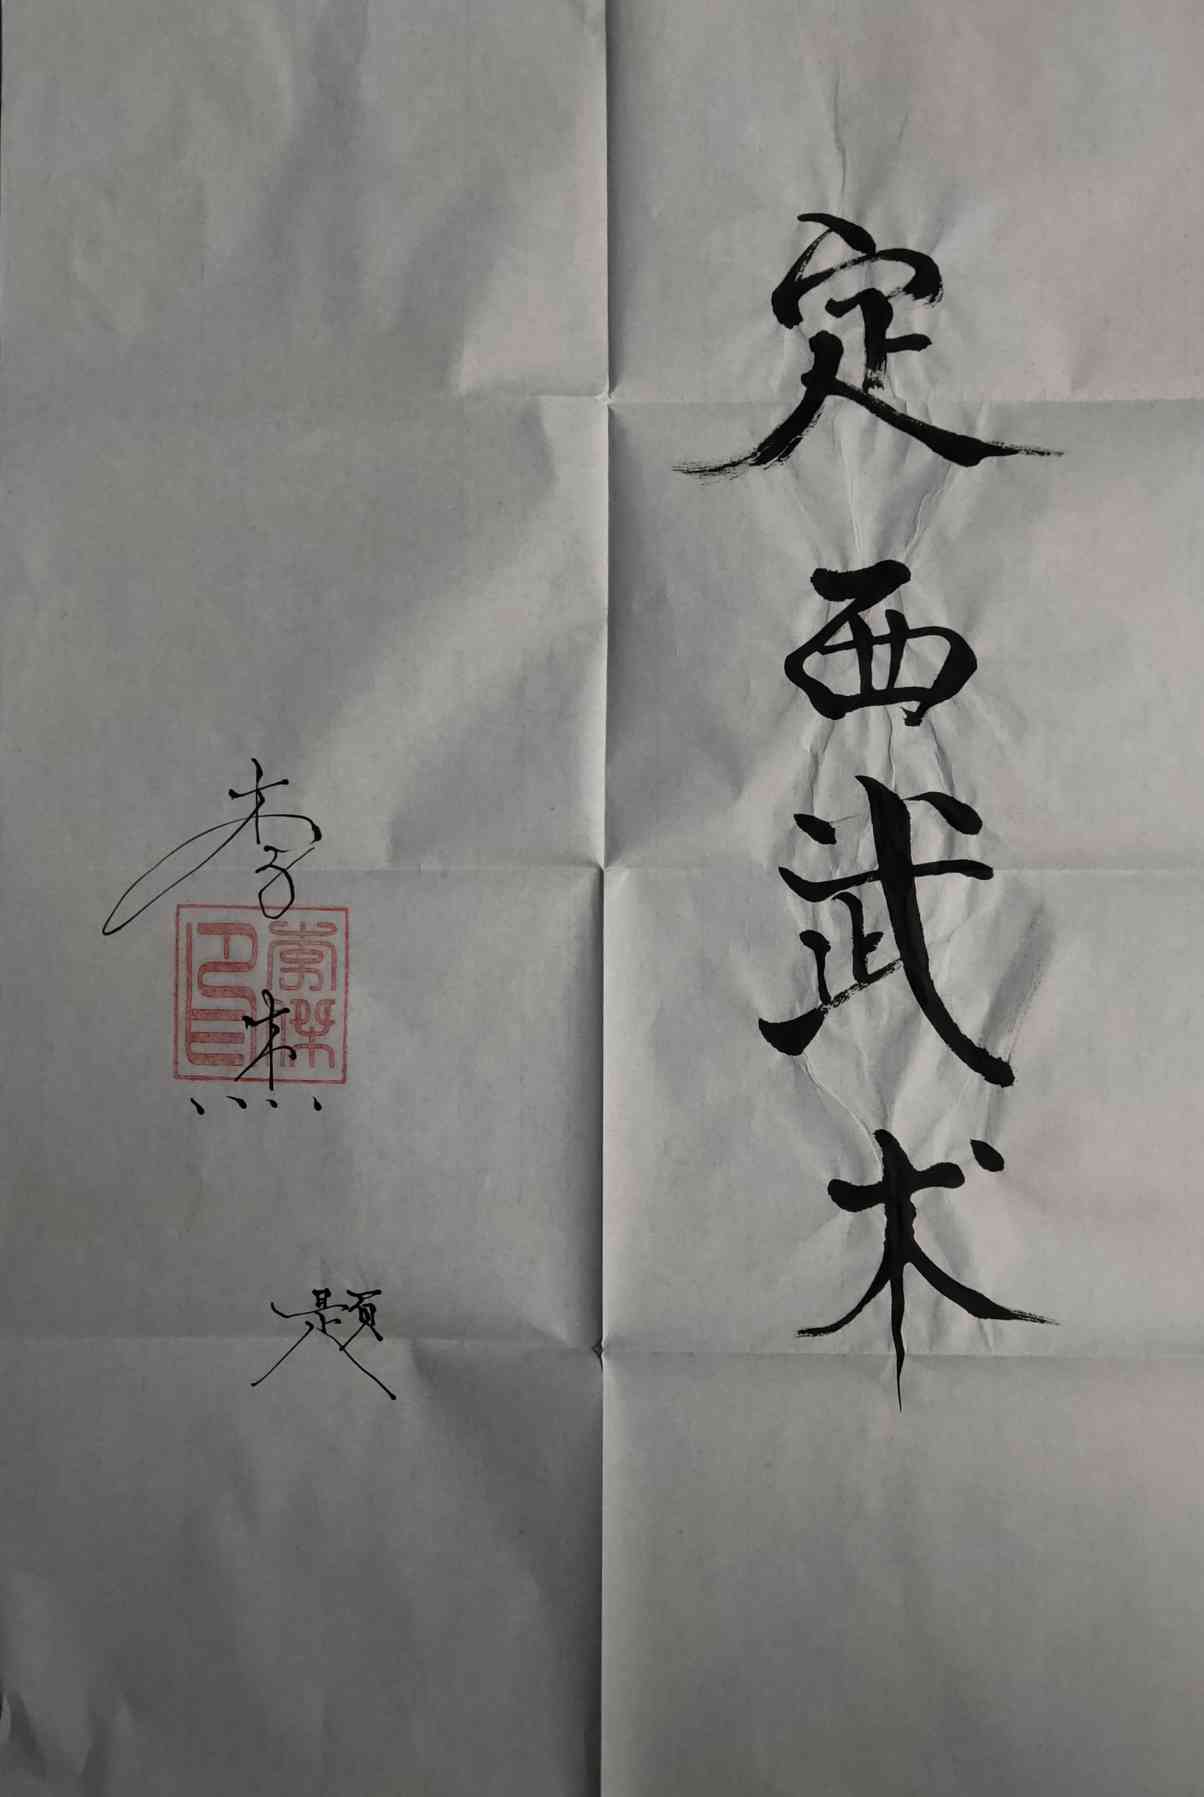 定西武术
李杰题